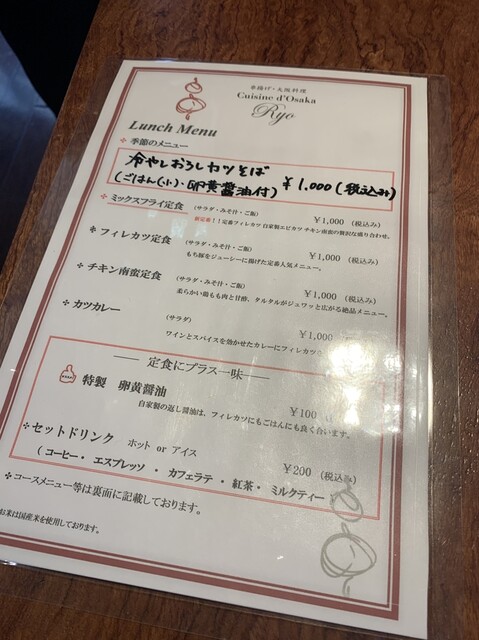 串揚げ・大阪料理
Cuisine d'Osaka
Ryo
Lunch Menu
季節のメニュー
冷やしおろしカツそば
(ごはん(小)・卵黄醤油付) ¥1,000(税込み)
ミックスフライ定食 (サラダ・みそ汁・ご飯) ¥1,000 (税込み)
新定番!!定番フィレカツ 自家製エビカツ チキン南蛮の贅沢な盛り合わせ。
フィレカツ定食 (サラダ・みそ汁・ご飯) ¥1,000 (税込み)
もち豚をジューシーに揚げた定番人気メニュー。
チキン南蛮定食 (サラダ・みそ汁・ご飯) ¥1,000 (税込み)
柔らかい鶏もも肉と甘酢、タルタルがジュワッと広がる絶品メニュー。
カツカレー (サラダ) ¥1,000 (税込み)
ワインとスパイスを効かせたカレーにフィレカツ
定食にプラス一味
特製 卵黄醤油 ¥100
自家製の返し醤油は、フィレカツにもごはんにも良く合います。
セットドリンク ホット or アイス ¥200 (税込み)
(コーヒー・エスプレッソ・カフェラテ・紅茶・ミルクティー
コースメニュー等は裏面に記載しております。
お米は国産米を使用しております。